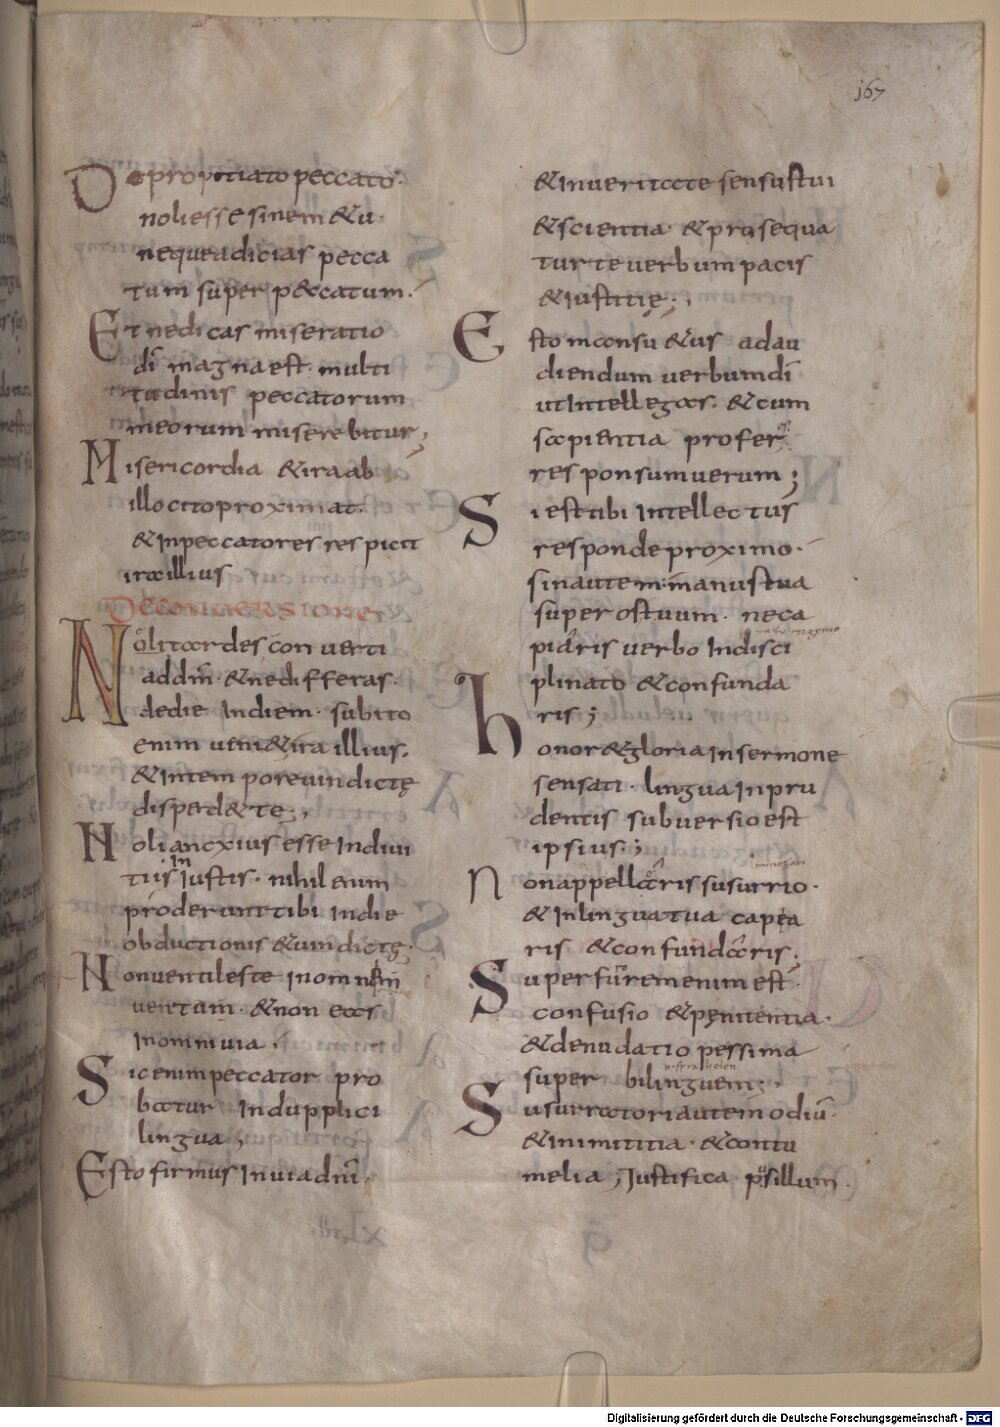 167
De propitiato peccato.
noli esse sine m&u.
neque adicias pecca
tum super peccatum.
Et ne dicas miseratio
di magna est. multi
tudinis peccatorum
meorum miserebitur;
Misericordia & ira ab
illo cito proximat.
& in peccatores respicit
ira illius
De conversione
Noli tardes converti
ad dnm. & ne differas.
de die in diem. subito
enim veni& ira illius.
& in tempore vindictę
disperd& te;
Noli anxius esse in divi
tiis in iustis. nihil enim
proderunt tibi in die
obductionis & vindictę.
Non ventiles te in omnem
ventum. & non eas
in omni via.
Sic enim peccator pro
batur in dupplici
lingua;
Esto firmus in via dni.
& in veritate sensus tui
& scientia. & prosequa
tur te verbum pacis
& iustitię;
Esto mansu&us ad au
diendum verbum di
ut intellegas. & cum
sapientia profer
responsum verum;
Si est tibi intellectus
responde proximo.
sin autem manus tua
super os tuum. ne ca
piaris verbo indisci
plinato & confunda
ris;
honor & gloria in sermone
sensati. lingua inpru
dentis subversio est
ipsius;
Non appellaris susurrio.
& in lingua tua capia
ris & confundaris;
Super furem enim est
confusio & pęnitentia.
& denudatio pessima
super bilinguem;
Susurratori autem odiu.
& inimititia. & contu
melia; Justifica pusillum.
Digitalisierung gefördert durch die Deutsche Forschungsgemeinschaft - DFG